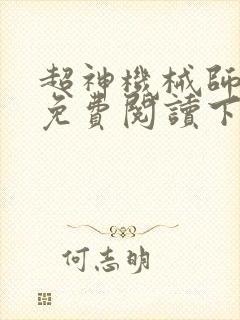 超神機械師
免費閱讀下
何志明